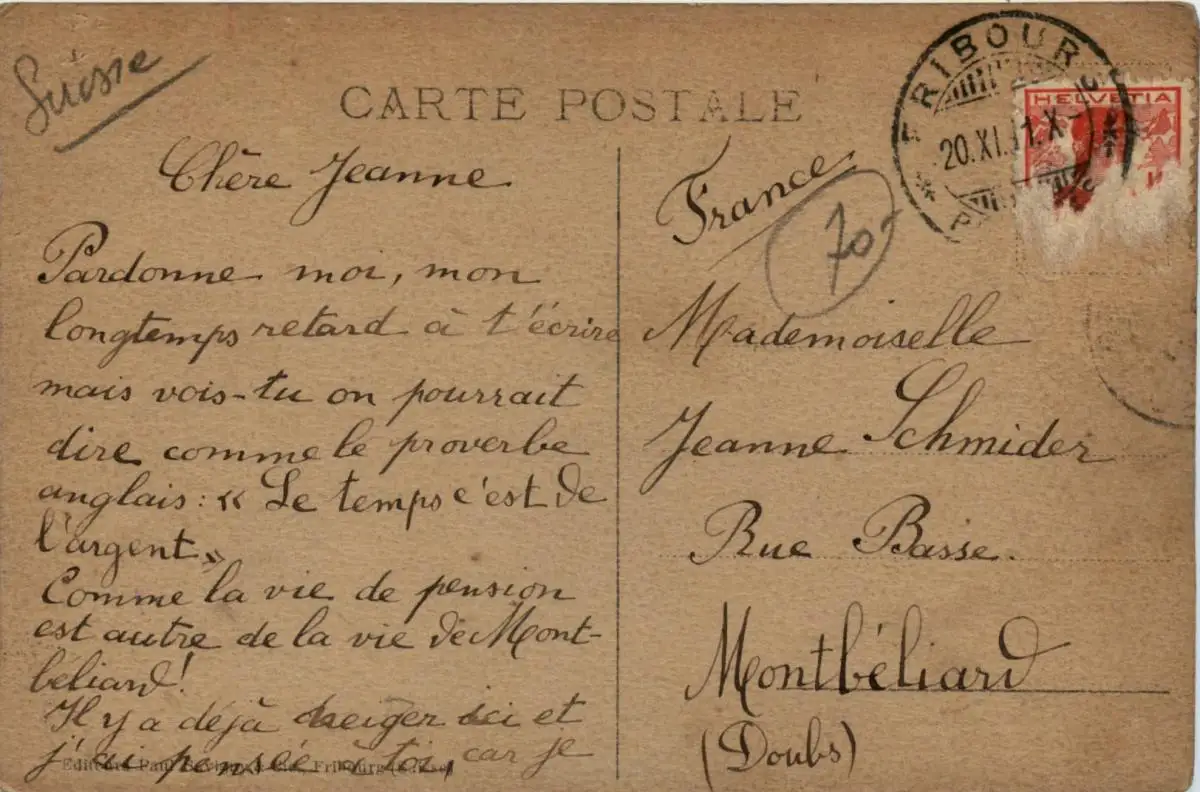 Suisse
CARTE POSTALE
Chère Jeanne
Pardonne moi, mon
longtemps retard à t'écrire
mais vois-tu on pourrait
dire comme le proverbe
anglais: « Le temps c'est de
l'argent »
Comme la vie de pension
est autre de la vie de Mont-
béliard!
Il y a déjà neiger ici et
j'ai pensée à toi, car je
Fribourg
FRIBOURG
20.XI. X
HELVETIA
France
70-
Mademoiselle
Jeanne Schmider
Rue Basse.
Montbéliard
(Doubs)